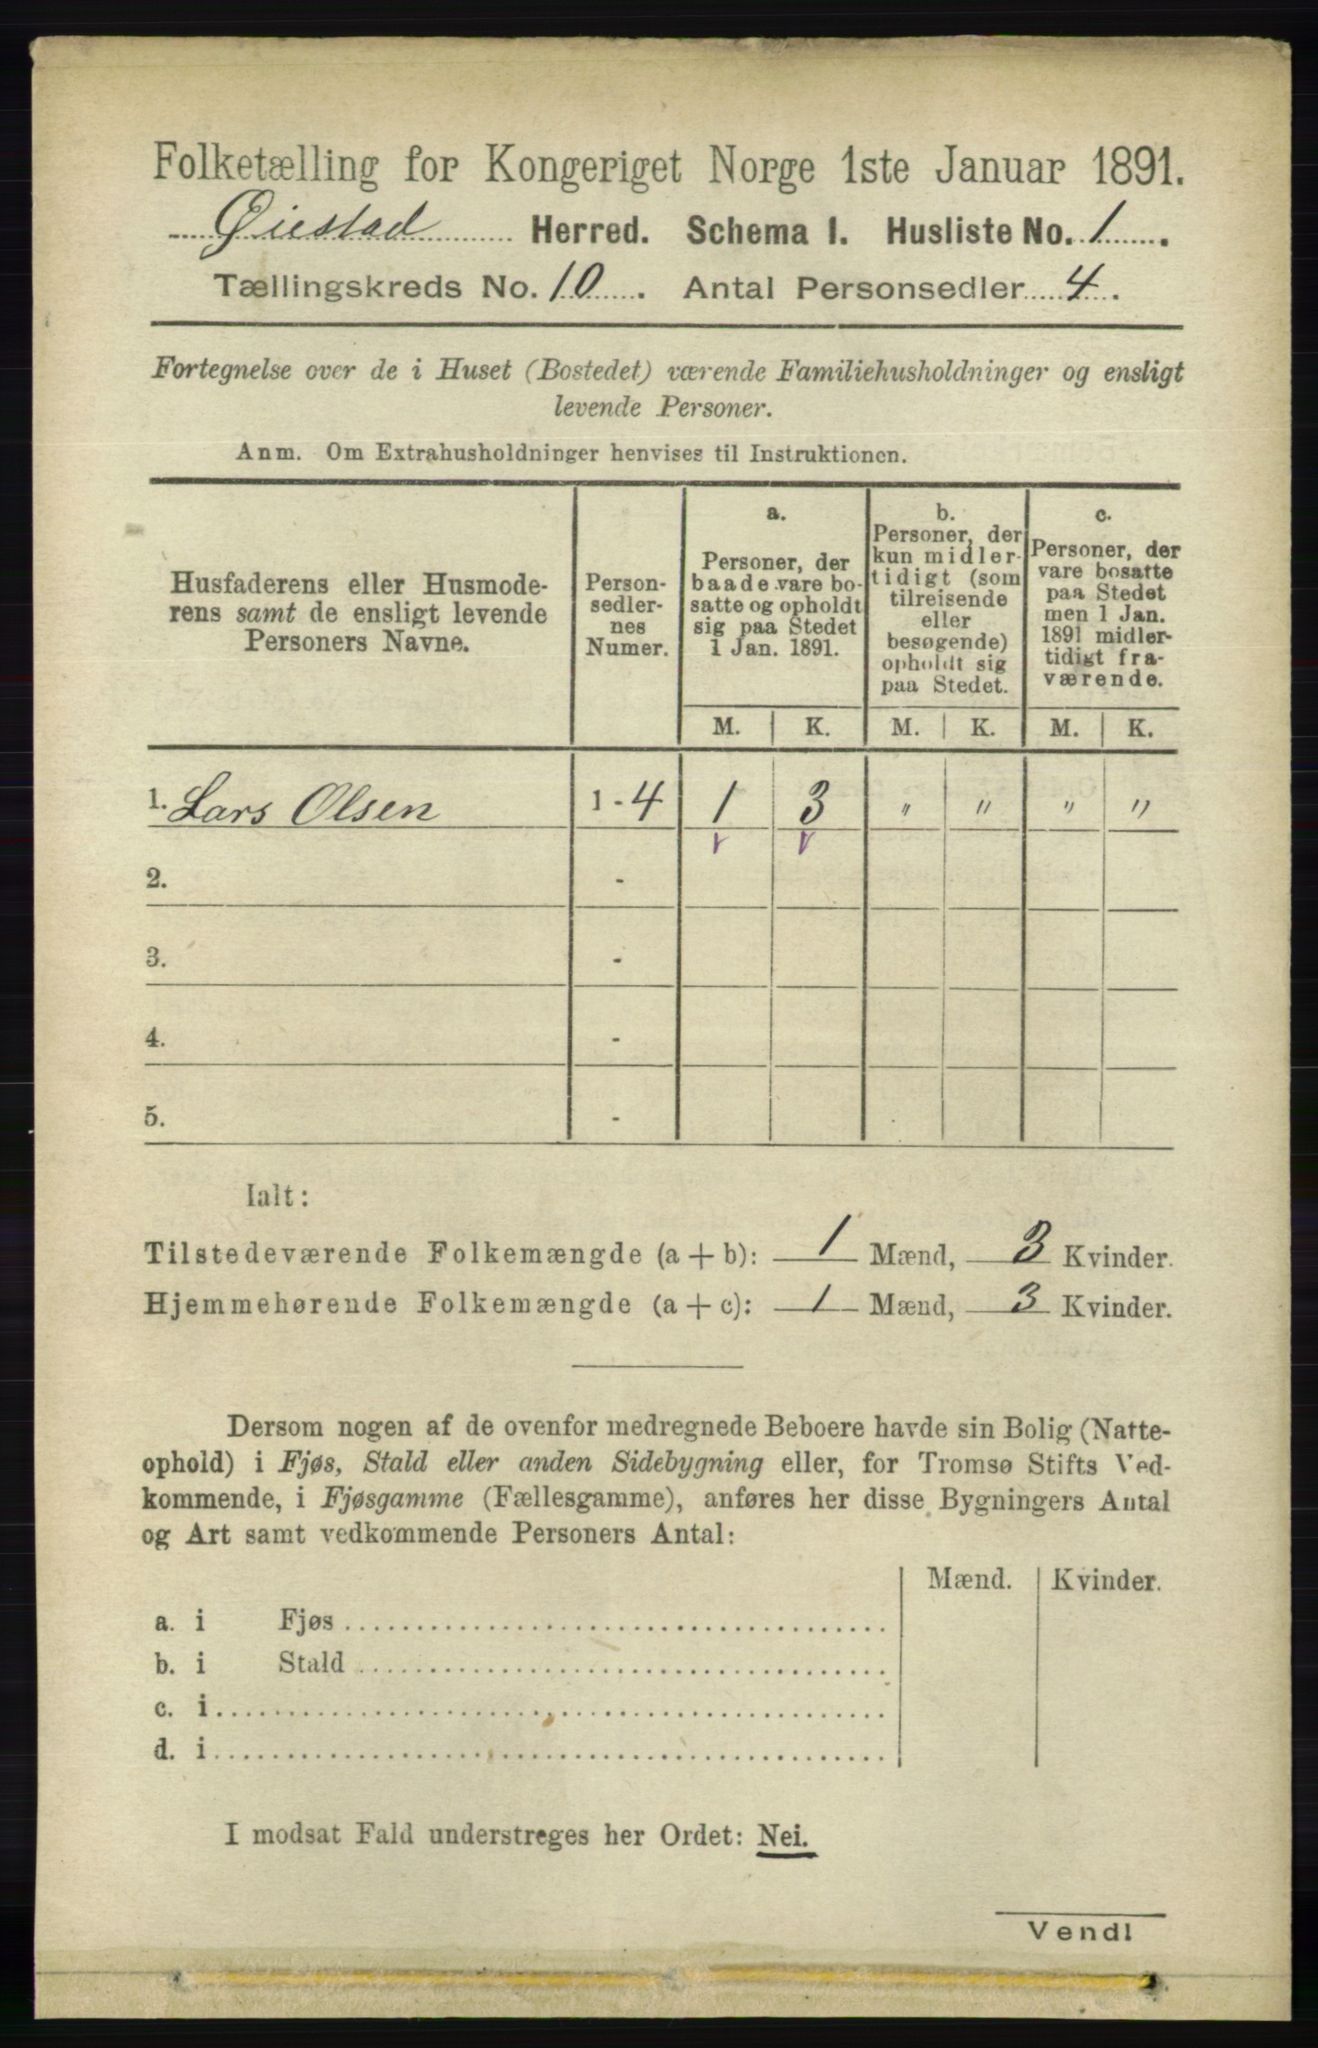 Folketælling for Kongeriget Norge 1ste Januar 1891.
Øiestad Herred. Schema I. Husliste No. 1.
Tællingskreds No. 10. Antal Personsedler 4.
Fortegnelse over de i Huset (Bostedet) værende Familiehusholdninger og ensligt
levende Personer.
Anm. Om Extrahusholdninger henvises til Instruktionen.
Husfaderens eller Husmode-
rens samt de ensligt levende
Personers Navne.
Person-
sedler-
nes
Numer.
a.
Personer, der
baade vare bo-
satte og opholdt
sig paa Stedet
1 Jan. 1891.
b.
Personer, der
kun midler-
tidigt (som
tilreisende
eller
besøgende)
opholdt sig
paa Stedet.
c.
Personer, der
vare bosatte
paa Stedet
men 1 Jan.
1891 midler-
tidigt fra-
værende.
M. K. M. K. M. K.
1. Lars Olsen 1-4 1 3 " " " "
2. -
3. -
4. -
5. -
Ialt:
Tilstedeværende Folkemængde (a + b): 1 Mænd, 3 Kvinder.
Hjemmehørende Folkemængde (a + c): 1 Mænd, 3 Kvinder.
Dersom nogen af de ovenfor medregnede Beboere havde sin Bolig (Natte-
ophold) i Fjøs, Stald eller anden Sidebygning eller, for Tromsø Stifts Ved-
kommende, i Fjøsgamme (Fællesgamme), anføres her disse Bygningers Antal
og Art samt vedkommende Personers Antal:
Mænd. Kvinder.
a. i Fjøs
b. i Stald
c. i
d. i
I modsat Fald understreges her Ordet: Nei.
Vendl